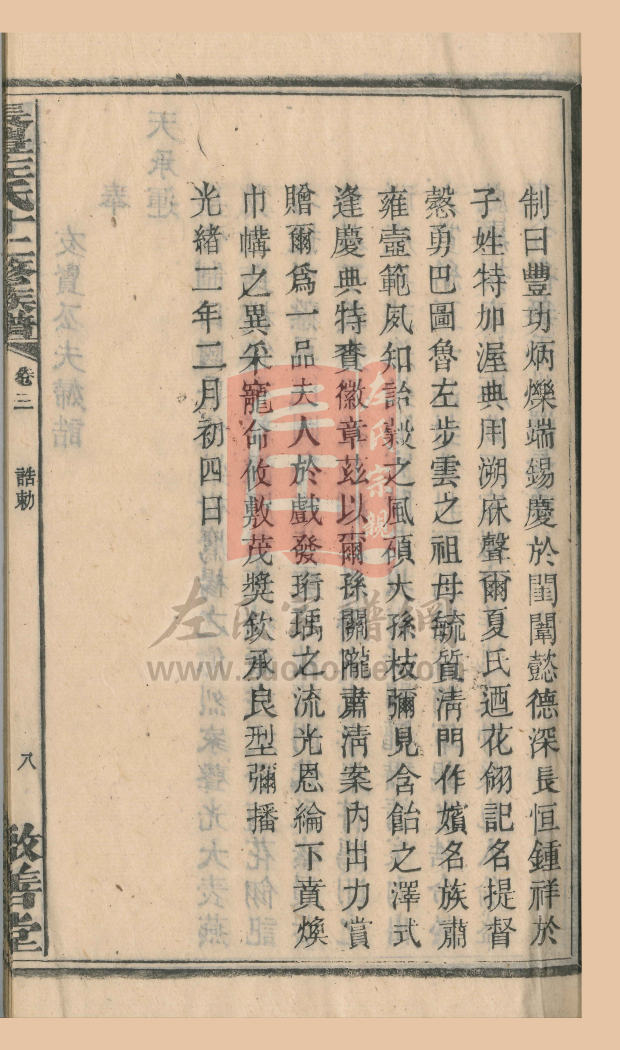 制曰豐功炳爍端錫慶於閨闈懿德深長恒鍾祥於
子姓特加渥典用溯庥聲爾夏氏迺花翎記名提督
慤勇巴圖魯左步雲之祖母毓質清門作嬪名族肅
雍壼範夙知詒穀之風碩大孫枝彌見含飴之澤式
逢慶典特賚徽章茲以爾孫關隴肅清案內出力賞
贈爾爲一品夫人於戲發珩瑀之流光恩綸下賁煥
巾幗之異采寵命攸敷茂獎欽承良型彌播
光緒二年二月初四日
左氏十二修族譜
卷三
誥勅
八
敦善堂
左氏宗親
www.zuohome.com